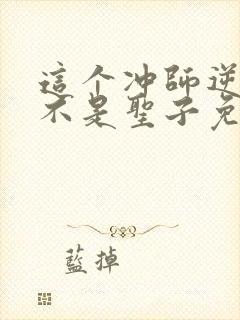 這个冲師逆
不是聖子免
藍掉